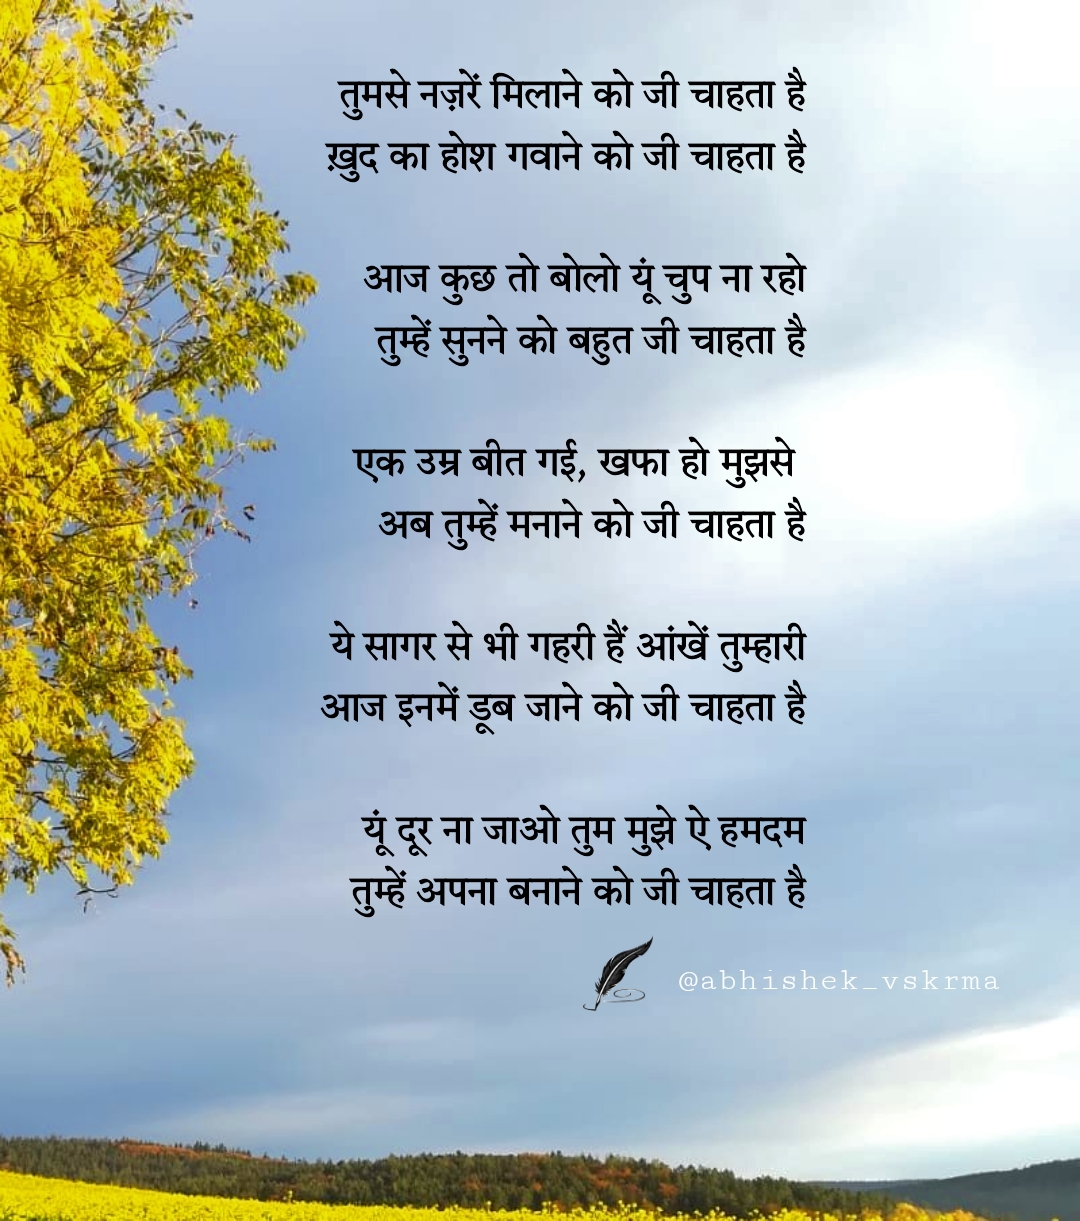 तुमसे नज़रें मिलाने को जी चाहता है
ख़ुद का होश गवाने को जी चाहता है
आज कुछ तो बोलो यूं चुप ना रहो
तुम्हें सुनने को बहुत जी चाहता है
एक उम्र बीत गई, खफा हो मुझसे
अब तुम्हें मनाने को जी चाहता है
ये सागर से भी गहरी हैं आंखें तुम्हारी
आज इनमें डूब जाने को जी चाहता है
यूं दूर ना जाओ तुम मुझे ऐ हमदम
तुम्हें अपना बनाने को जी चाहता है
@abhishek_vskrma